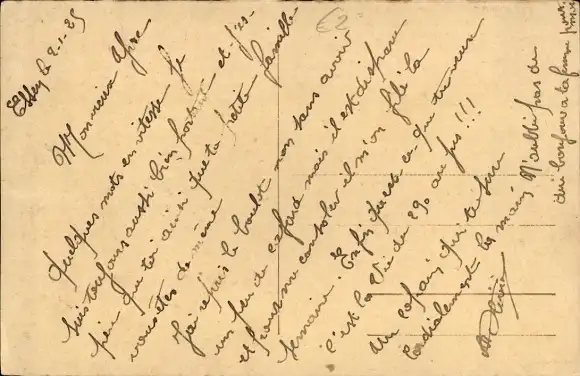 Essen le 2-1-25
Monsieur
Quelques mots en vitesse je
suis toujours aussi bien portant et j'es-
père que toi ainsi que ta petite famille
vous êtes de même
J'ai repris le boulot non sans avoir
un peu de cafard mais il est disparu
et pour me consoler il m'on filé la
semaine. Enfin que tu veux
c'est la vie de 29e au jus!!!
Un copain qui te serre
cordialement les mains
N'oublie pas de
bonjour à ta femme pour
moi